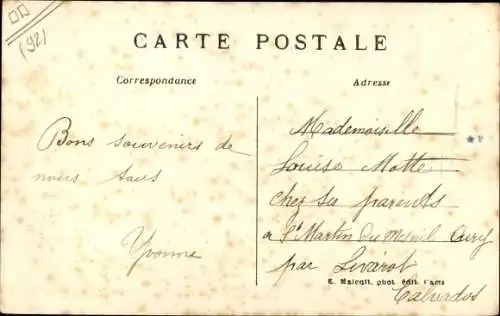 (92)
CARTE POSTALE
Correspondance
Adresse
Bons souvenirs de
nous tous
Yvonne
Mademoiselle
Louise Motte
chez ses parents
à St Martin du Mesnil Oury
par Livarot
E. Maleuit, phot. édit. Paris
Calvados